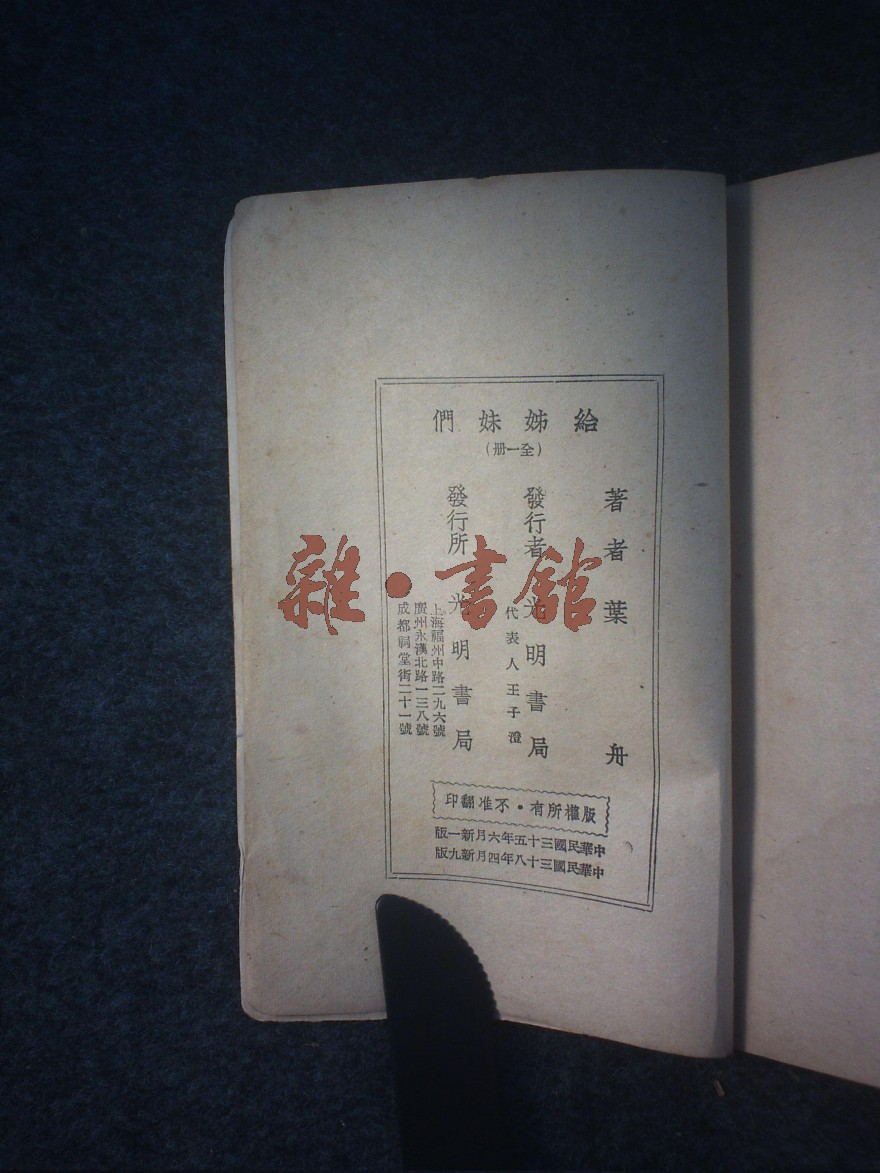 給姊妹們
（全一册）
著者葉舟
發行者光明書局
代表人王子澄
發行所光明書局
上海福州中路二九六號
廣州永漢北路一三八號
成都祠堂街二十一號
版權所有·不准翻印
中華民國三十五年六月新一版
中華民國三十八年四月新九版
雜·書館